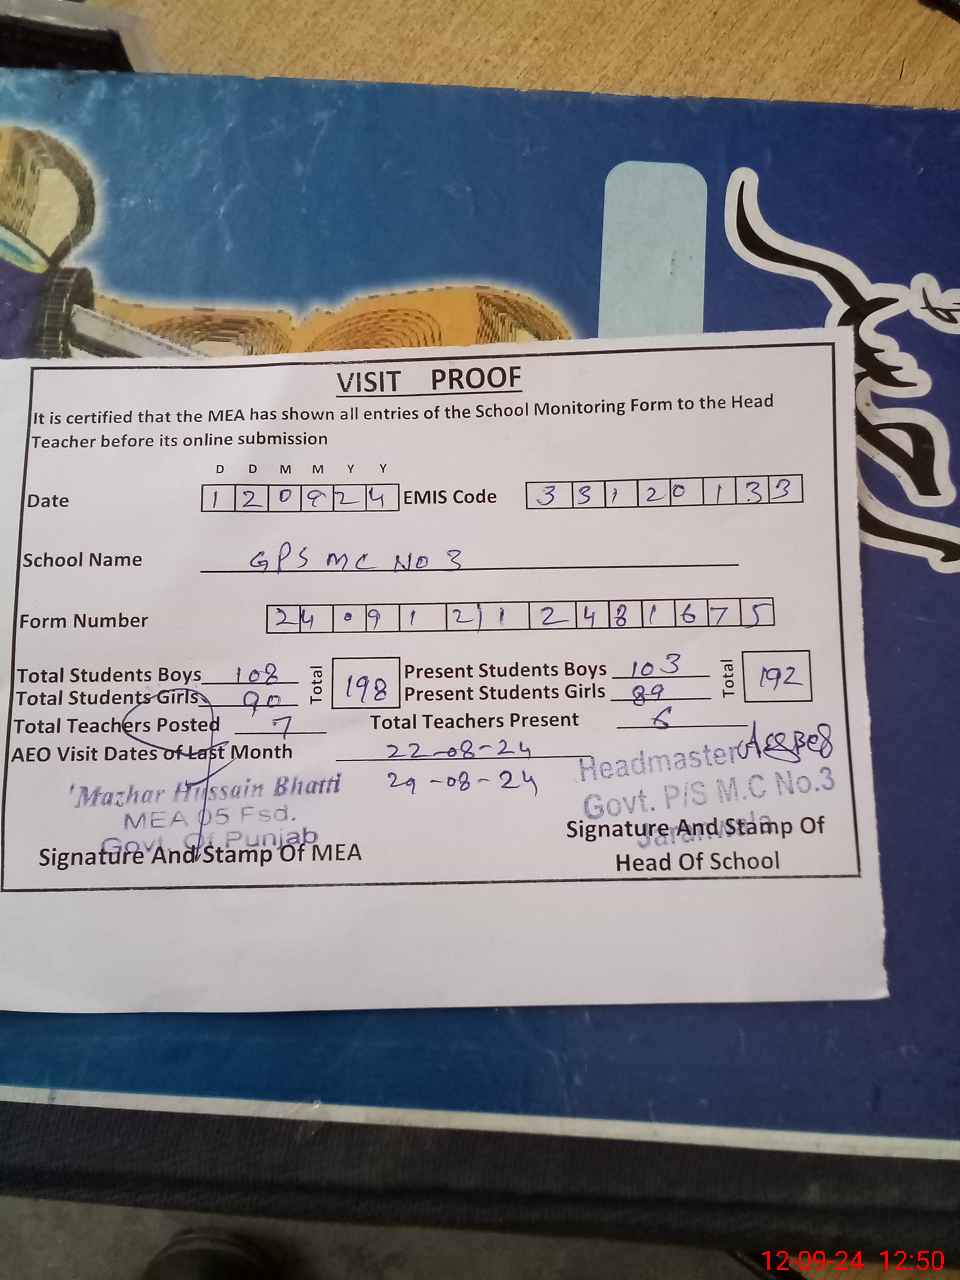 VISIT PROOF
It is certified that the MEA has shown all entries of the School Monitoring Form to the Head
Teacher before its online submission
D D M M Y Y
Date 1 2 0 9 2 4 EMIS Code 3 3 1 2 0 1 3 3
School Name GPS MC NO 3
Form Number 24 0 9 1 2 1 2 4 8 1 6 7 5
Total Students Boys 108 Total 198 Present Students Boys 103 Total 192
Total Students Girls 90 Present Students Girls 89
Total Teachers Posted 7 Total Teachers Present 6
AEO Visit Dates of Last Month 22-08-24
29-08-24
Mazhar Hussain Bhatti
MEA 05 Fsd.
Govt. Of Punjab
Signature And Stamp Of MEA
Headmaster
Govt. P/S M.C No.3
Jaranwala
Signature And Stamp Of
Head Of School
12-09-24 12:50